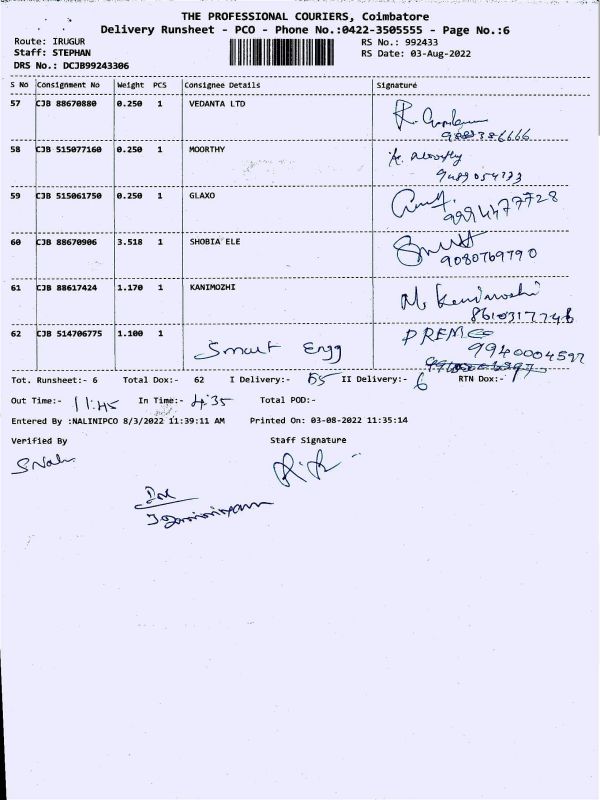 THE PROFESSIONAL COURIERS, Coimbatore
Delivery Runsheet - PCO - Phone No.:0422-3505555 - Page No.:6
Route: IRUGUR RS No.: 992433
Staff: STEPHAN RS Date: 03-Aug-2022
DRS No.: DCJB99243306
S No Consignment No Weight PCS Consignee Details Signature
57 CJB 88670880 0.250 1 VEDANTA LTD
58 CJB 515077160 0.250 1 MOORTHY
9489054773
59 CJB 515061750 0.250 1 GLAXO
9994477728
60 CJB 88670906 3.518 1 SHOBIA ELE
9080769790
61 CJB 88617424 1.170 1 KANIMOZHI
8610317746
62 CJB 514706775 1.100 1 Smart Engg PREM
9940004597
Tot. Runsheet:- 6 Total Dox:- 62 I Delivery:- 55 II Delivery:- 6 RTN Dox:-
Out Time:- 11:45 In Time:- 4:35 Total POD:-
Entered By :NALINIPCO 8/3/2022 11:39:11 AM Printed On: 03-08-2022 11:35:14
Verified By Staff Signature